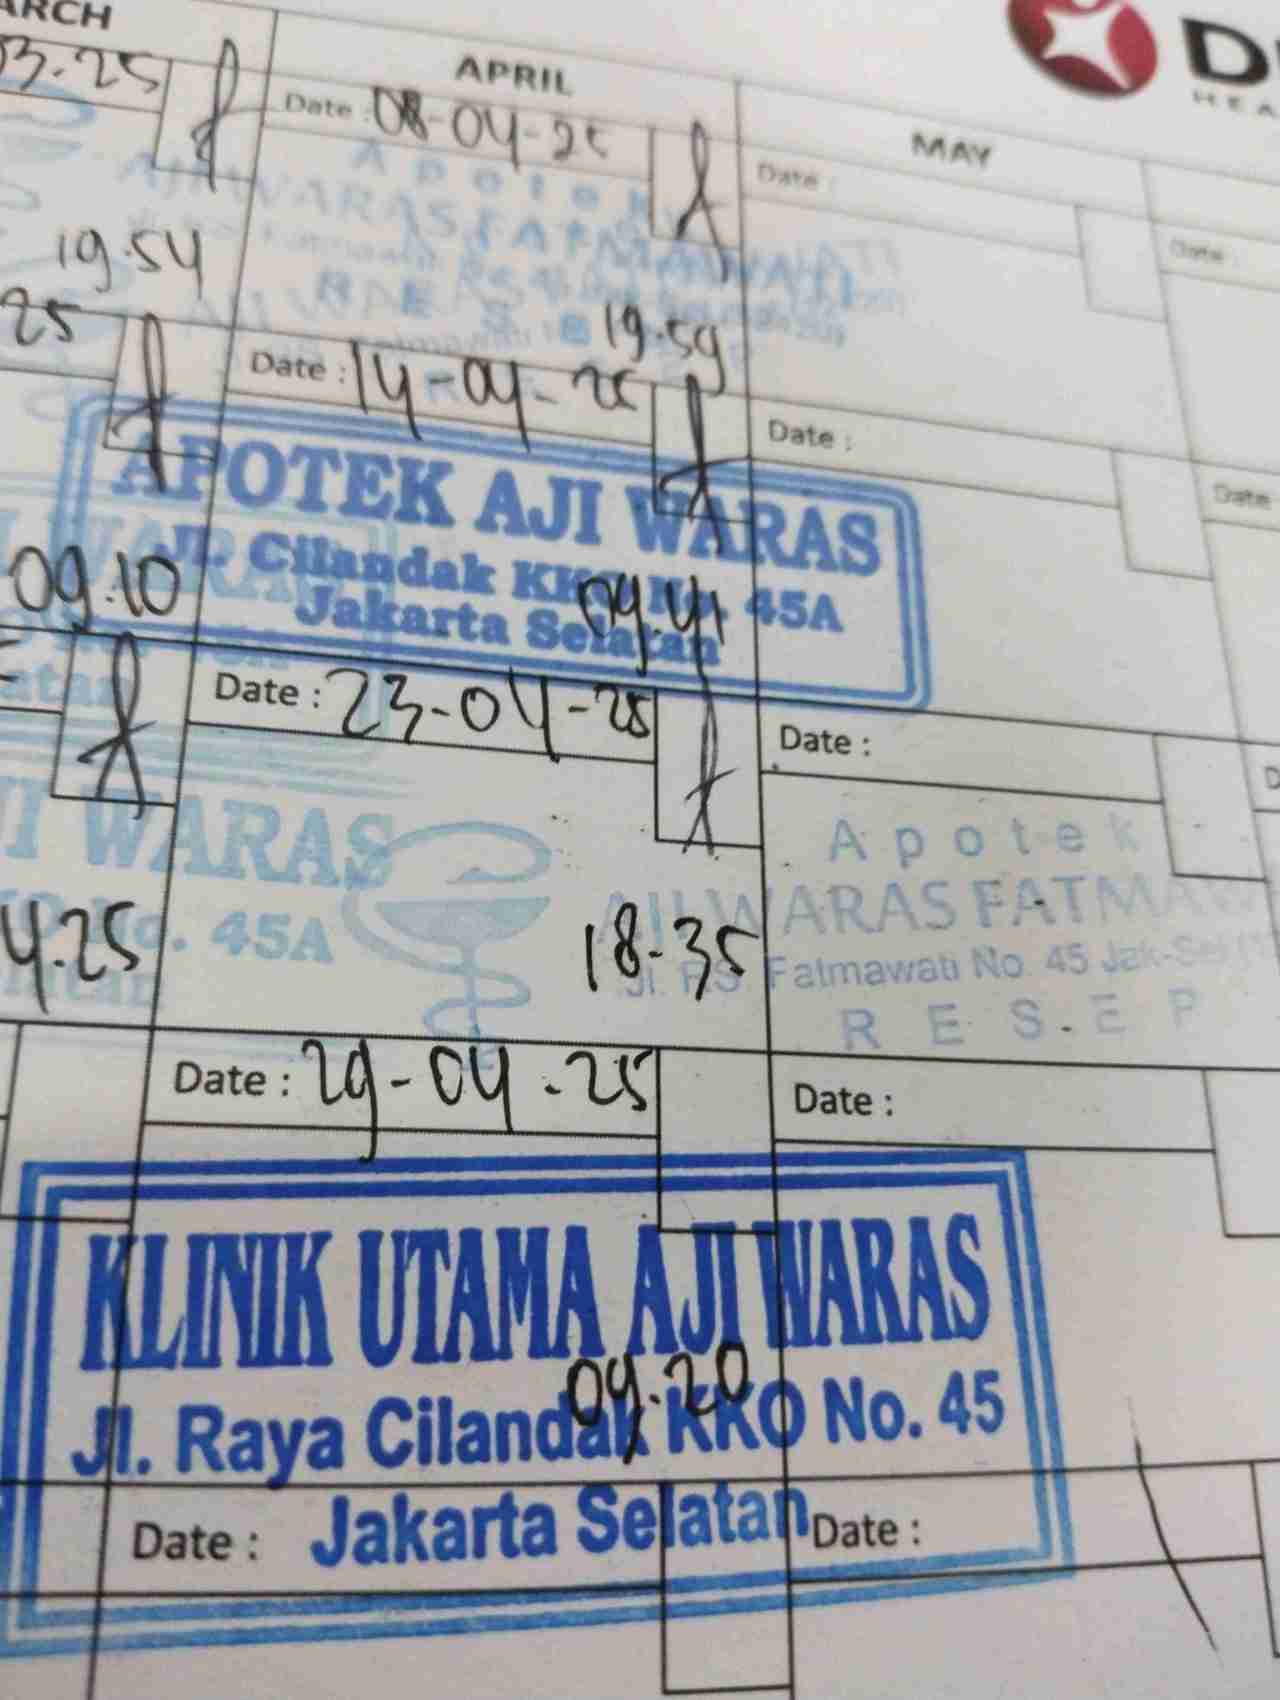 ARCH
03.25
19.54
25
09.10
JI WARAS
No. 45A
4.25
APRIL
Date : 08-04-25
Apotek
AJI WARAS FATMAWATI
19.59
Date : 14-04-25
APOTEK AJI WARAS
Jl. Cilandak KKO No. 45A
Jakarta Selatan
09.41
Date : 23-04-25
18.35
Date : 29-04-25
KLINIK UTAMA AJI WARAS
09.20
Jl. Raya Cilandak KKO No. 45
Jakarta Selatan
Date :
MAY
Date :
Date :
Date :
Apotek
AJI WARAS FATMAW
Jl. RS. Fatmawati No. 45 Jak-Sel
RESEP
Date :
Date :
Date :
Date
D
D
HEA